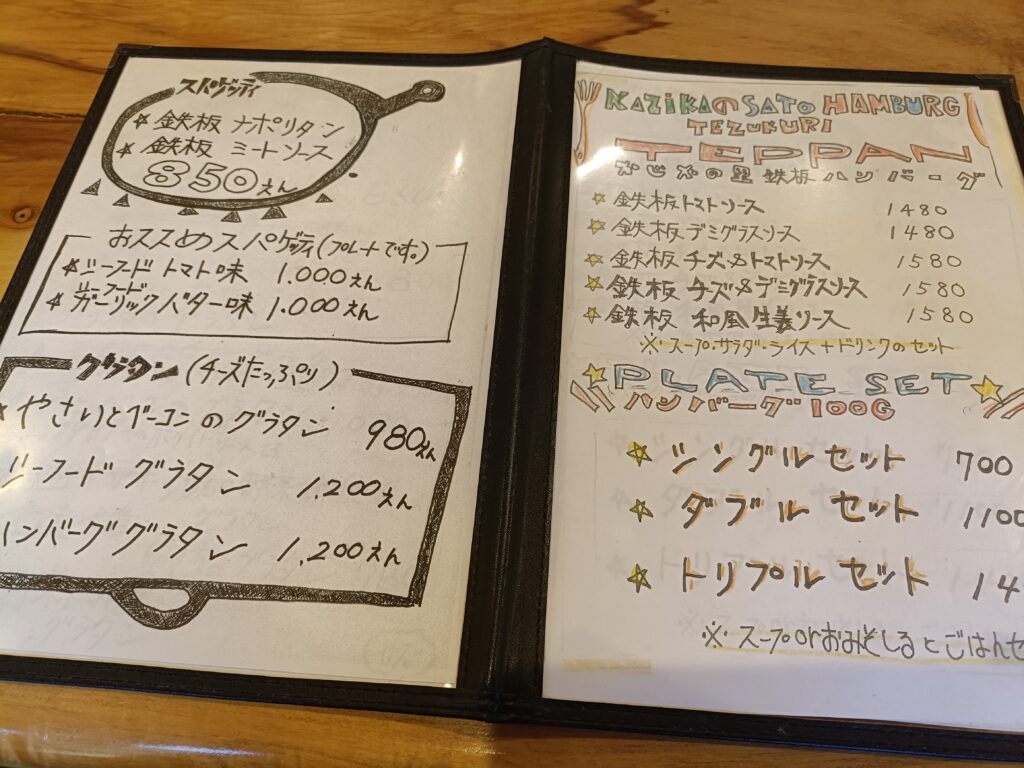 スパゲッティ
☆ 鉄板 ナポリタン
☆ 鉄板 ミートソース
850えん
おススめスパゲッティ(プレートです。)
☆シーフード トマト味 1.000えん
シーフード
☆ ガーリックバター味 1.000えん
グラタン(チーズたっぷり)
やさいとベーコンのグラタン 980えん
シーフード グラタン 1,200えん
ハンバーググラタン 1,200えん
KAZIKAのSATO HAMBURG
TEZUKURI
TEPPAN
かじかの里 鉄板 ハンバーグ
☆ 鉄板トマトソース 1480
☆ 鉄板デミグラスソース 1480
☆ 鉄板チーズ&トマトソース 1580
☆ 鉄板チーズ&デミグラスソース 1580
☆ 鉄板 和風生姜ソース 1580
※スープ・サラダ・ライス+ドリンクのセット
☆PLATE SET☆
ハンバーグ100G
☆ シングルセット 700
☆ ダブル セット 1100
☆ トリプル セット 14
※スープorおみそしるとごはんセ